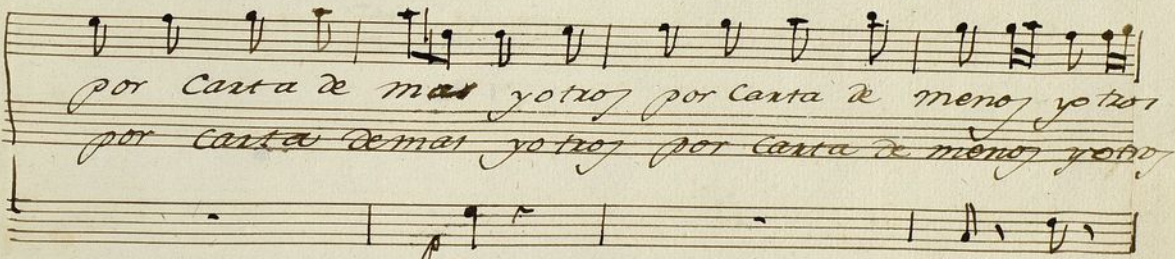 por Carta de mas y otros por Carta de menos y otros
por carta de mas y otros por Carta de menos y otros
p